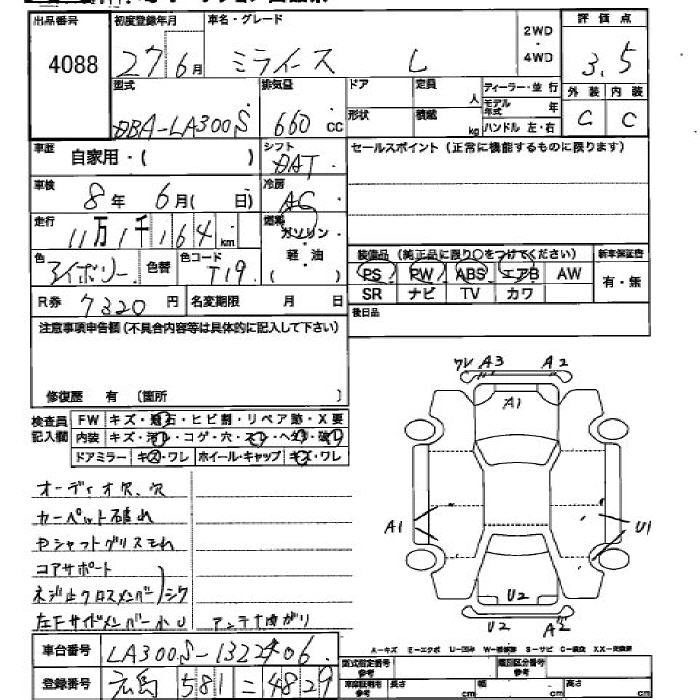 出品番号 4088
初度登録年月 27年6月
車名・グレード ミライース L
2WD・4WD
評価点 3.5
型式 DBA-LA300S
排気量 660 cc
ドア 定員 人
形状 積載 kg
ディーラー・並行
モデル年式 年
ハンドル 左・右
外装 C 内装 C
車歴 自家用・( )
シフト DAT
セールスポイント(正常に機能するものに限ります)
車検 8年 6月( 日)
冷房 AC
走行 11万1千164km
燃料 ガソリン・軽油 ( )
色 アイボリー 色替 色コード T19
装備品(純正品に限り○をつけてください) 新車保証書
PS PW ABS エアB AW 有・無
SR ナビ TV カワ
R券 7320円 名変期限 月 日
後日品
注意事項申告欄(不具合内容等は具体的に記入して下さい)
修復歴 有 〔箇所 〕
ワレ A3 A2
A1
検査員記入欄 FW キズ・飛石・ヒビ割・リペア跡・X要
内装 キズ・汚レ・コゲ・穴・スレ・ヘタリ・破レ
ドアミラー キズ・ワレ ホイール・キャップ キズ・ワレ
オーディオ欠、穴
カーペット破れ
Pシャフトグリスモれ
コアサポート
ネジ止クロスメンバー シワ
左Fサイドメンバー小U アンテナ曲がり
A1 U1
U2
U2 A2
車台番号 LA300S-1322406
登録番号 広島 581 ニ 4829
A-キズ E-エクボ U-凹み
S-サビ C-腐食
型式指定番号 類別区分番号
長さ cm 幅 cm 高さ cm